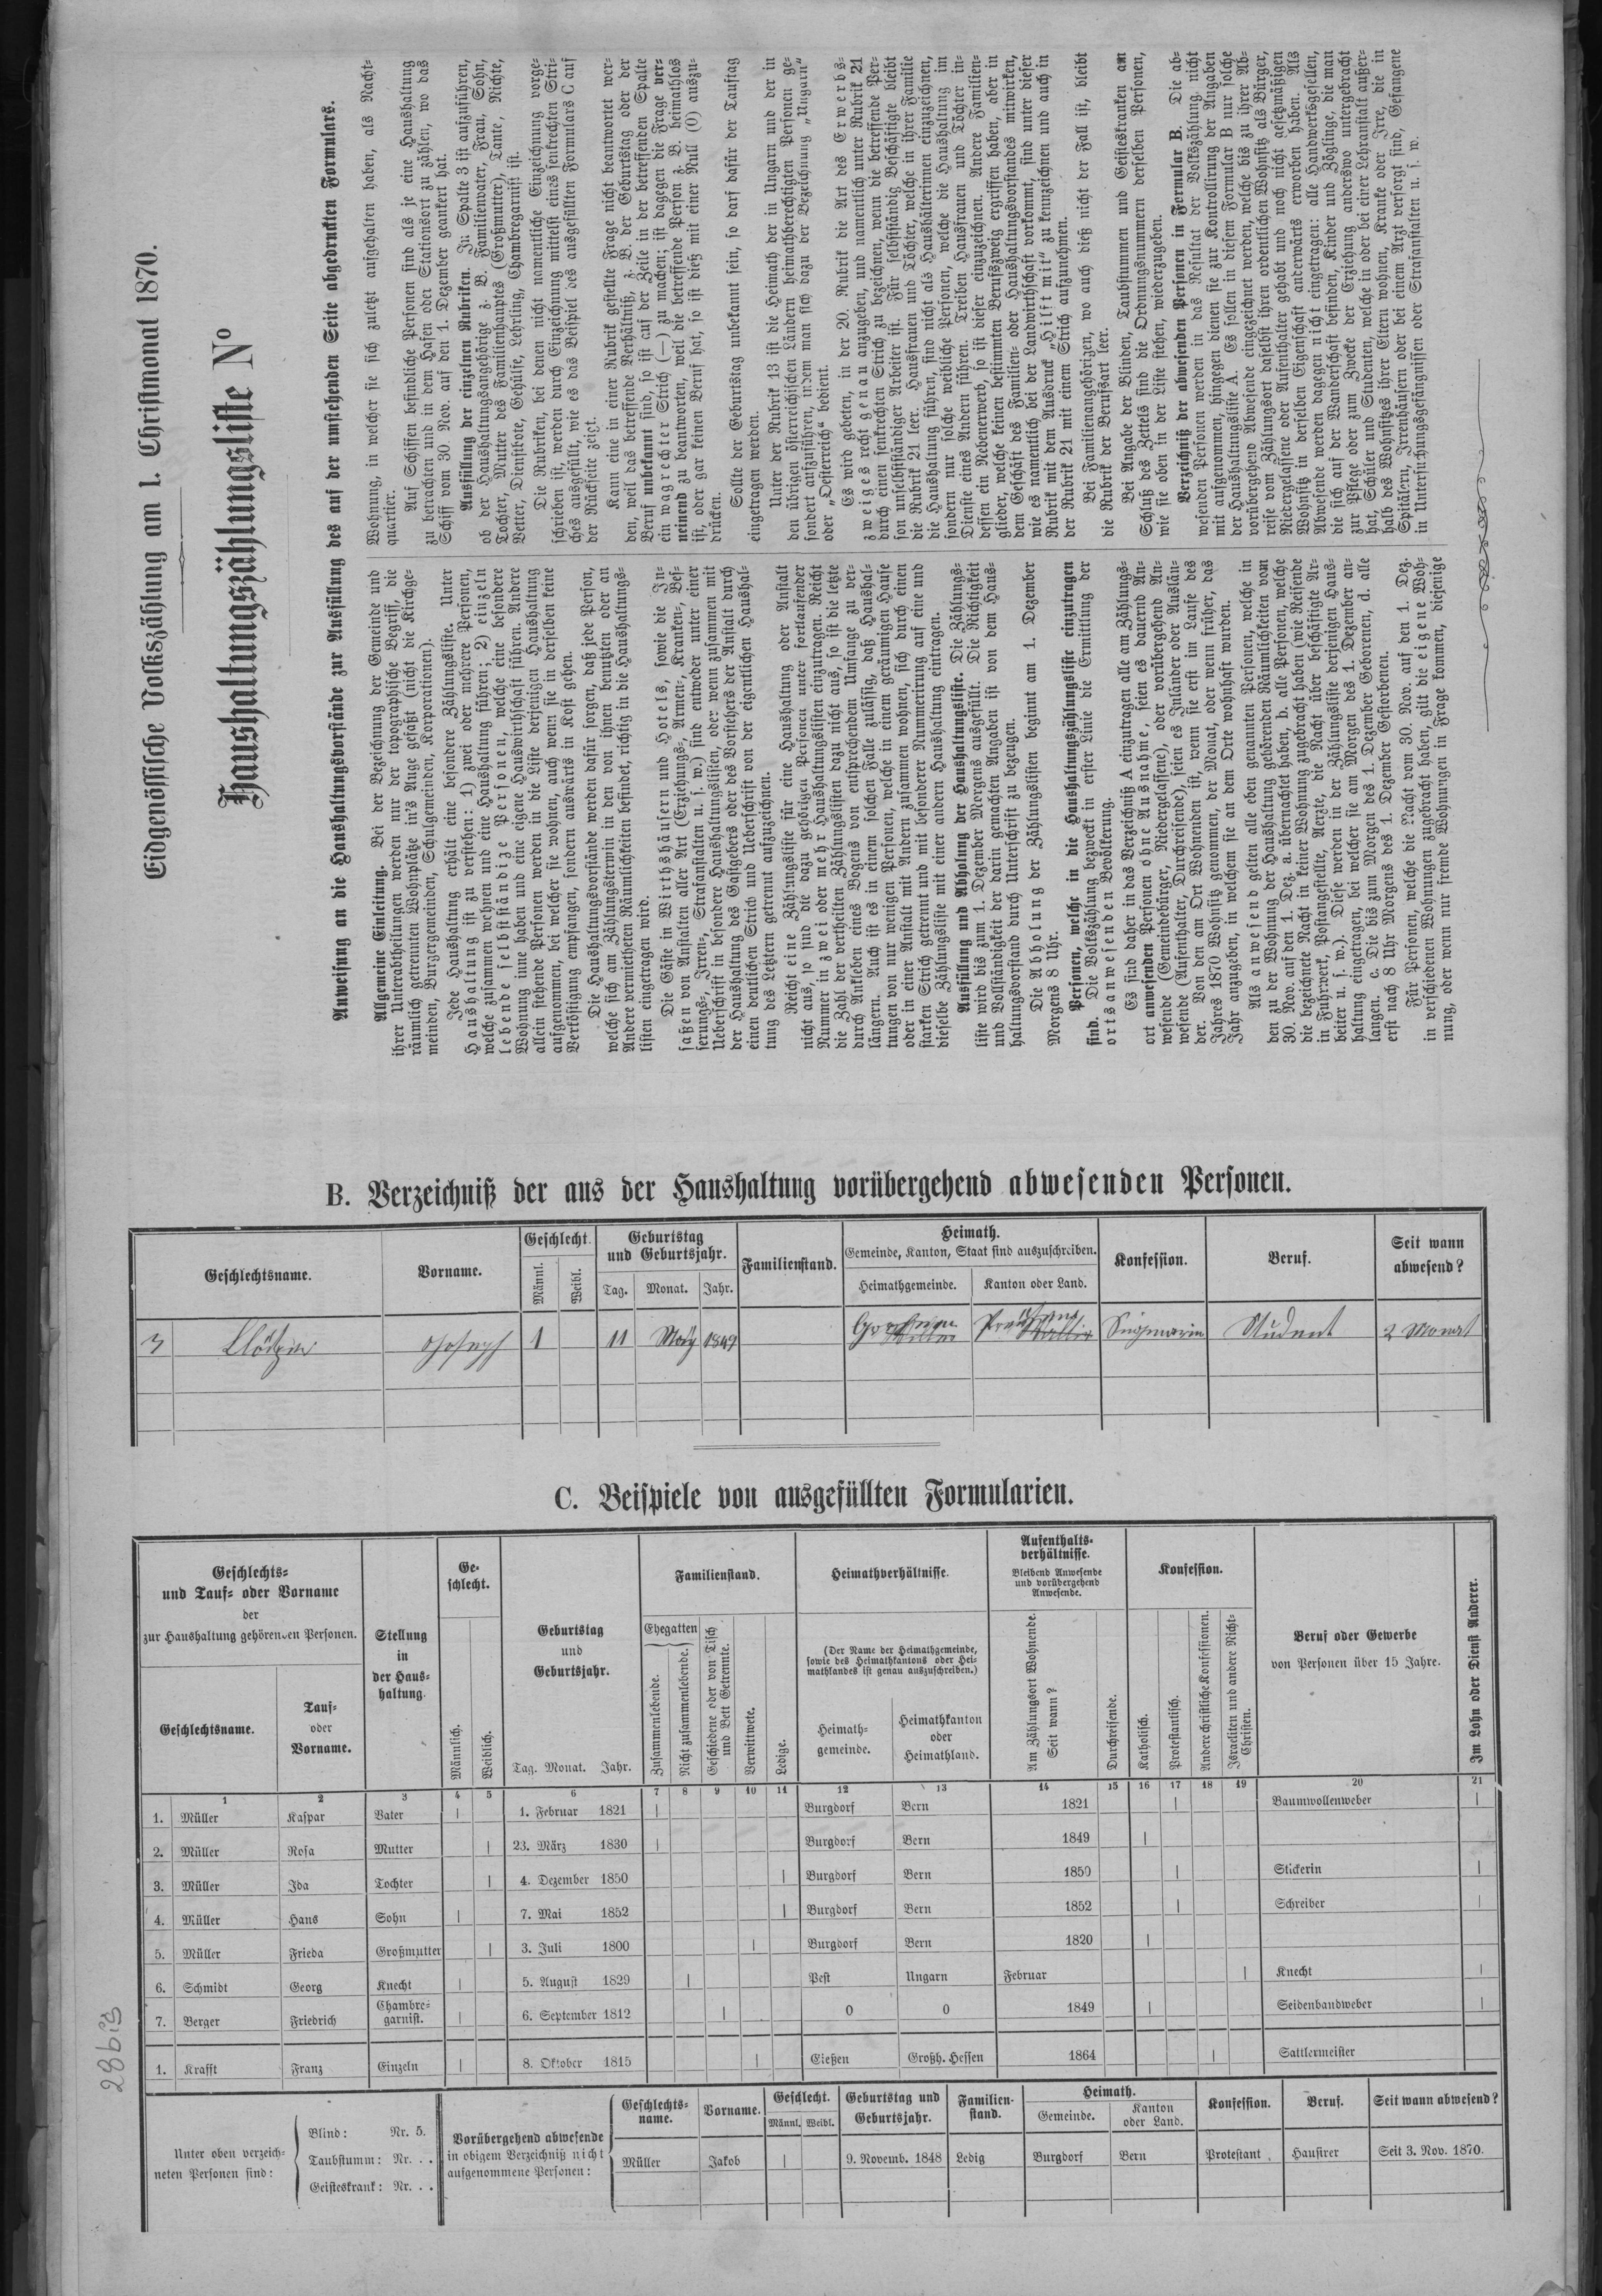 Eidgenössische Volkszählung am 1. Christmonat 1870.
Haushaltungszählungsliste No
Anweisung an die Haushaltungsvorstände zur Ausfüllung des auf der umstehenden Seite abgedruckten Formulars.
Allgemeine Einleitung. Bei der Bezeichnung der Gemeinde und
ihrer Unterabtheilungen werden nur der topographische Begriff, die
räumlich getrennten Wohnplätze in's Auge gefaßt (nicht die Kirchge-
meinden, Burgergemeinden, Schulgemeinden, Korporationen).
Jede Haushaltung erhält eine besondere Zählungsliste. Unter
Haushaltung ist zu verstehen: 1) zwei oder mehrere Personen,
welche zusammen wohnen und eine Haushaltung führen; 2) einzeln
lebende selbstständige Personen, welche eine besondere
Wohnung inne haben und eine eigene Hauswirthschaft führen. Andere
allein stehende Personen werden in die Liste derjenigen Haushaltung
aufgenommen, bei welcher sie wohnen, auch wenn sie in derselben keine
Verköstigung empfangen, sondern auswärts in Kost gehen.
Die Haushaltungsvorstände werden dafür sorgen, daß jede Person,
welche sich am Zählungstermin in den von ihnen benutzten oder an
Andere vermietheten Räumlichkeiten befindet, richtig in die Haushaltungs-
listen eingetragen wird.
Die Gäste in Wirthshäusern und Hotels, sowie die In-
saßen von Anstalten aller Art (Erziehungs-, Armen-, Kranken-, Bes-
serungs-, Irren-, Strafanstalten u. s. w.) sind entweder unter einer
Ueberschrift in besondere Haushaltungslisten, oder wenn zusammen mit
der Haushaltung des Gastgebers oder des Vorstehers der Anstalt durch
einen deutlichen Strich und Ueberschrift von der eigentlichen Haushal-
tung des Letztern getrennt aufzuzeichnen.
Reicht eine Zählungsliste für eine Haushaltung oder Anstalt
nicht aus, so sind die dazu gehörigen Personen unter fortlaufender
Nummer in zwei oder mehr Haushaltungslisten einzutragen. Reicht
die Zahl der vertheilten Zählungslisten dazu nicht aus, so ist die letzte
durch Ankleben eines Bogens von entsprechendem Umfange zu ver-
längern. Auch ist es in einem solchen Falle zuläßig, daß Haushal-
tungen von nur wenigen Personen, welche in einem geräumigen Hause
oder in einer Anstalt mit Andern zusammen wohnen, sich durch einen
starken Strich getrennt und mit besonderer Nummerirung auf eine und
dieselbe Zählungsliste mit einer andern Haushaltung eintragen.
Ausfüllung und Abholung der Haushaltungsliste. Die Zählungs-
liste wird bis zum 1. Dezember Morgens ausgefüllt. Die Richtigkeit
und Vollständigkeit der darin gemachten Angaben ist von dem Haus-
haltungsvorstand durch Unterschrift zu bezeugen.
Die Abholung der Zählungslisten beginnt am 1. Dezember
Morgens 8 Uhr.
Personen, welche in die Haushaltungszählungsliste einzutragen
sind. Die Volkszählung bezweckt in erster Linie die Ermittlung der
ortsanwesenden Bevölkerung.
Es sind daher in das Verzeichniß A einzutragen alle am Zählungs-
ort anwesenden Personen ohne Ausnahme, seien es dauernd An-
wesende (Gemeindebürger, Niedergelassene), oder vorübergehend An-
wesende (Aufenthalter, Durchreisende), seien es Inländer oder Auslän-
der. Von den am Ort Wohnenden ist, wenn sie erst im Laufe des
Jahres 1870 Wohnsitz genommen, der Monat, oder wenn früher, das
Jahr anzugeben, in welchem sie an dem Orte wohnhaft wurden.
Als anwesend gelten alle eben genannten Personen, welche in
den zu der Wohnung der Haushaltung gehörenden Räumlichkeiten vom
30. Nov. auf den 1. Dez. a. übernachtet haben, b. alle Personen, welche
die bezeichnete Nacht in keiner Wohnung zugebracht haben (wie Reisende
in Fuhrwerk, Postangestellte, Aerzte, die Nacht über beschäftigte Ar-
beiter u. s. w.). Diese werden in der Zählungsliste derjenigen Haus-
haltung eingetragen, bei welcher sie am Morgen des 1. Dezember an-
langen. c. Die bis zum Morgen des 1. Dezember Geborenen, d. alle
erst nach 8 Uhr Morgens des 1. Dezember Gestorbenen.
Für Personen, welche die Nacht vom 30. Nov. auf den 1. Dez.
in verschiedenen Wohnungen zugebracht haben, gilt die eigene Woh-
nung, oder wenn nur fremde Wohnungen in Frage kommen, diejenige
Wohnung, in welcher sie sich zuletzt aufgehalten haben, als Nacht-
quartier.
Auf Schiffen befindliche Personen sind als je eine Haushaltung
zu betrachten und in dem Hafen oder Stationsort zu zählen, wo das
Schiff vom 30. Nov. auf den 1. Dezember geankert hat.
Ausfüllung der einzelnen Rubriken. In Spalte 3 ist aufzuführen,
ob der Haushaltungsangehörige z. B. Familienvater, Frau, Sohn,
Tochter, Mutter des Familienhauptes (Großmutter), Tante, Nichte,
Vetter, Dienstbote, Gehülfe, Lehrling, Chambregarnist ist.
Die Rubriken, bei denen nicht namentliche Einzeichnung vorge-
schrieben ist, werden durch Einzeichnung mittelst eines senkrechten Stri-
ches ausgefüllt, wie es das Beispiel des ausgefüllten Formulars C auf
der Rückseite zeigt.
Kann eine in einer Rubrik gestellte Frage nicht beantwortet wer-
den, weil das betreffende Verhältniß, z. B. der Geburtstag oder der
Beruf unbekannt sind, so ist auf der Zeile in der betreffenden Spalte
ein wagrechter Strich (—) zu machen; ist dagegen die Frage ver-
neinend zu beantworten, weil die betreffende Person z. B. heimathlos
ist, oder gar keinen Beruf hat, so ist dieß mit einer Null (0) auszu-
drücken.
Sollte der Geburtstag unbekannt sein, so darf dafür der Tauftag
eingetragen werden.
Unter der Rubrik 13 ist die Heimath der in Ungarn und der in
den übrigen österreichischen Ländern heimathberechtigten Personen ge-
sondert aufzuführen, indem man sich dazu der Bezeichnung „Ungarn“
oder „Oesterreich“ bedient.
Es wird gebeten, in der 20. Rubrik die Art des Erwerbs-
zweiges recht genau anzugeben, und namentlich unter Rubrik 21
durch einen senkrechten Strich zu bezeichnen, wenn die betreffende Per-
son unselbstständiger Arbeiter ist. Für selbstständig Beschäftigte bleibt
die Rubrik 21 leer. Hausfrauen und Töchter, welche in ihrer Familie
die Haushaltung führen, sind nicht als Haushälterinnen einzuzeichnen,
sondern nur solche weibliche Personen, welche die Haushaltung im
Dienste eines Andern führen. Treiben Hausfrauen und Töchter in-
dessen ein Nebenerwerb, so ist dieser einzuzeichnen. Andere Familien-
glieder, welche keinen bestimmten Berufszweig ergriffen haben, aber in
dem Geschäft des Familien- oder Haushaltungsvorstandes mitwirken,
wie es namentlich bei der Landwirthschaft vorkommt, sind unter dieser
Rubrik mit dem Ausdruck „Hilft mit“ zu kennzeichnen und auch in
der Rubrik 21 mit einem Strich aufzunehmen.
Bei Familienangehörigen, wo auch dieß nicht der Fall ist, bleibt
die Rubrik der Berufsart leer.
Bei Angabe der Blinden, Taubstummen und Geisteskranken am
Schluß des Zettels sind die Ordnungsnummern derselben Personen,
wie sie oben in der Liste stehen, wiederzugeben.
Verzeichniß der abwesenden Personen in Formular B. Die ab-
wesenden Personen werden in das Resultat der Volkszählung nicht
mit aufgenommen, hingegen dienen sie zur Kontrollirung der Angaben
der Haushaltungsliste A. Es sollen in diesem Formular B nur solche
vorübergehend Abwesende eingezeichnet werden, welche bis zu ihrer Ab-
reise vom Zählungsort daselbst ihren ordentlichen Wohnsitz als Bürger,
Niedergelassene oder Aufenthalter gehabt und noch nicht gesetzmäßigen
Wohnsitz in derselben Eigenschaft anderwärts erworben haben. Als
Abwesende werden dagegen nicht eingetragen: alle Handwerksgesellen,
die sich auf der Wanderschaft befinden, Kinder und Zöglinge, die man
zur Pflege oder zum Zwecke der Erziehung anderswo untergebracht
hat, Schüler und Studenten, welche in oder bei einer Lehranstalt außer-
halb des Wohnsitzes ihrer Eltern wohnen, Kranke oder Irre, die in
Spitälern, Irrenhäusern oder bei einem Arzt versorgt sind, Gefangene
in Untersuchungsgefängnissen oder Strafanstalten u. s. w.
B. Verzeichniß der aus der Haushaltung vorübergehend abwesenden Personen.
Geschlechtsname. Vorname. Geschlecht. Männl. Weibl. Geburtstag und Geburtsjahr. Tag. Monat. Jahr. Familienstand. Heimath. Gemeinde, Kanton, Staat sind auszuschreiben. Heimathgemeinde. Kanton oder Land. Konfession. Beruf. Seit wann abwesend?
3 Joseph 1 11 1849 Student 2 Monat
C. Beispiele von ausgefüllten Formularien.
Geschlechts- und Tauf- oder Vorname der zur Haushaltung gehörenden Personen. Geschlechtsname. Tauf- oder Vorname.
Stellung in der Haushaltung.
Ge-schlecht. Männlich. Weiblich.
Geburtstag und Geburtsjahr. Tag. Monat. Jahr.
Familienstand. Ehegatten Zusammenlebende. Nicht zusammenlebende. Geschiedene oder von Tisch und Bett Getrennte. Verwittwete. Ledige.
Heimathverhältnisse. (Der Name der Heimathgemeinde, sowie des Heimathkantons oder Heimathlandes ist genau auszuschreiben.) Heimath-gemeinde. Heimathkanton oder Heimathland.
Aufenthalts-verhältnisse. Bleibend Anwesende und vorübergehend Anwesende. Am Zählungsort Wohnende. Seit wann? Durchreisende.
Konfession. Katholisch. Protestantisch. Andere christliche Konfessionen. Israeliten und andere Nicht-Christen.
Beruf oder Gewerbe von Personen über 15 Jahre.
Im Lohn oder Dienst Anderer.
1 2 3 4 5 6 7 8 9 10 11 12 13 14 15 16 17 18 19 20 21
1. Müller Kaspar Vater | 1. Februar 1821 | Burgdorf Bern 1821 | Baumwollenweber |
2. Müller Rosa Mutter | 23. März 1830 | Burgdorf Bern 1849 |
3. Müller Ida Tochter | 4. Dezember 1850 | Burgdorf Bern 1850 | Stickerin |
4. Müller Hans Sohn | 7. Mai 1852 | Burgdorf Bern 1852 | Schreiber |
5. Müller Frieda Großmutter | 3. Juli 1800 | Burgdorf Bern 1820 |
6. Schmidt Georg Knecht | 5. August 1829 | Pest Ungarn Februar | Knecht |
7. Berger Friedrich Chambre-garnist. | 6. September 1812 | 0 0 1849 | Seidenbandweber |
1. Krafft Franz Einzeln | 8. Oktober 1815 | Gießen Großh. Hessen 1864 | Sattlermeister
Unter oben verzeich-neten Personen sind: Blind: Nr. 5. Taubstumm: Nr. . . Geisteskrank: Nr. . .
Vorübergehend abwesende in obigem Verzeichniß nicht aufgenommene Personen:
Geschlechts-name. Vorname. Geschlecht. Männl. Weibl. Geburtstag und Geburtsjahr. Familien-stand. Heimath. Gemeinde. Kanton oder Land. Konfession. Beruf. Seit wann abwesend?
Müller Jakob | 9. Novemb. 1848 Ledig Burgdorf Bern Protestant Hausirer Seit 3. Nov. 1870.
286bis